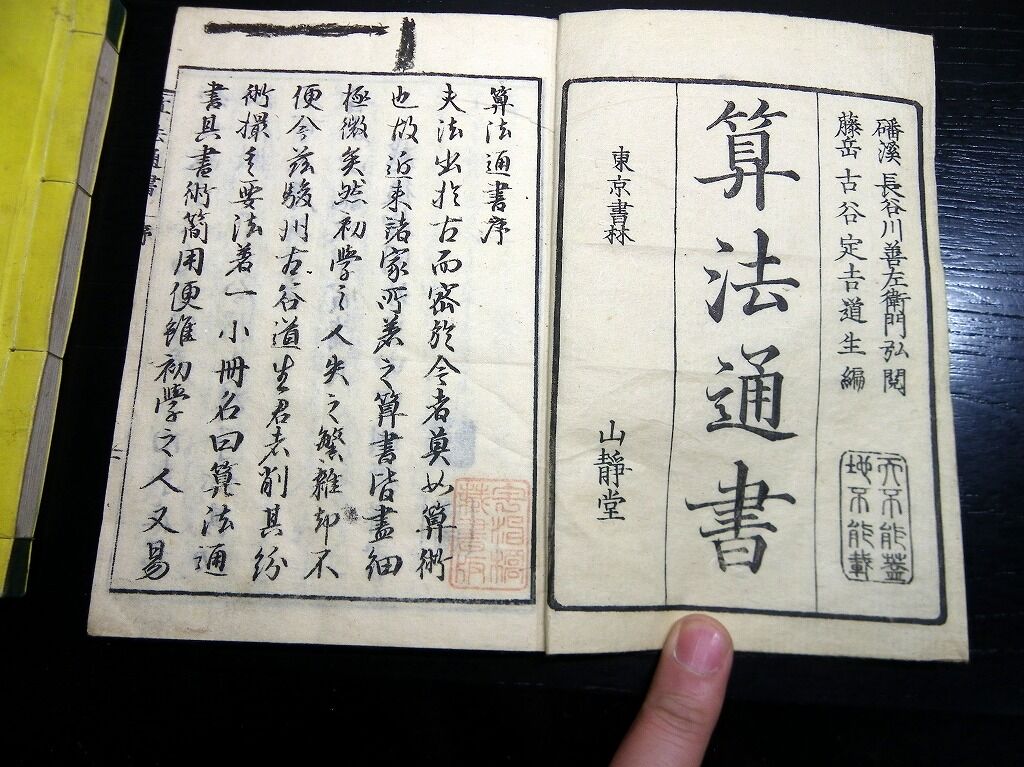 磻溪 長谷川善左衛門弘閱
藤岳 古谷定吉道生編
天不能蓋
地不能載
算法通書
東京書林 山靜堂
算法通書序
夫法出於古而密於今者莫如算術
也故近来諸家所著之算書皆盡細
極微矣然初學之人失之繁雜却不
便今茲駿州古谷道生君者削其紛
術撮之要法著一小冊名曰算法通
書其書術簡用便雖初學之人又易